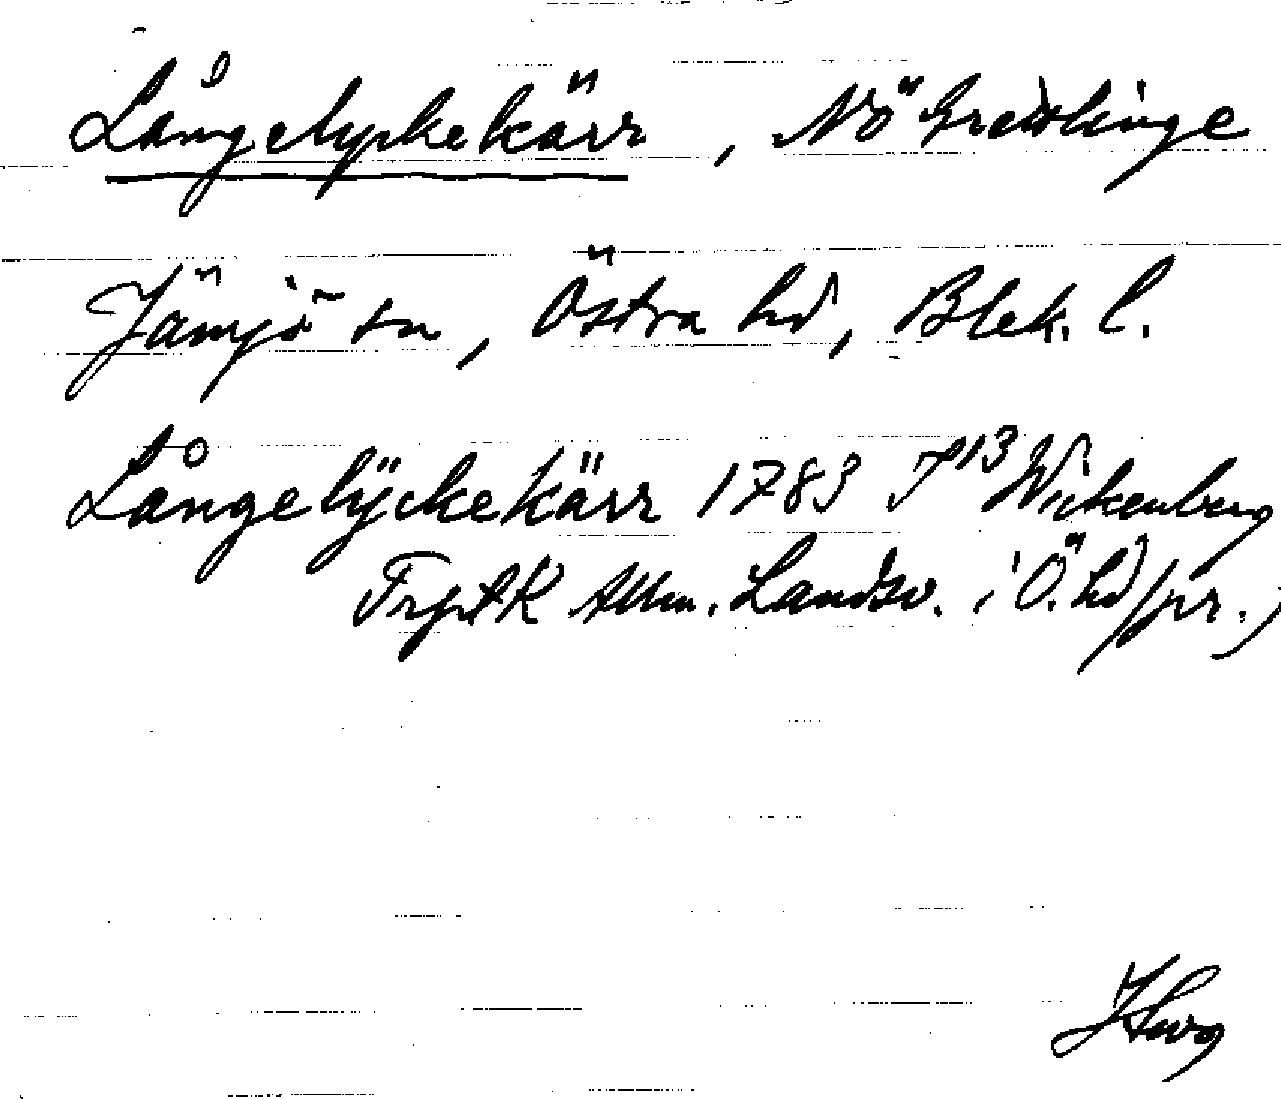 Långelyckekärr, Nö Gredlinge
Jämjö sn, Östra hd, Blek. l.
Långelÿckekärr 1783 J13 Wickenberg
FrptK Allm. Landsv. i Ö. hd (pr.)